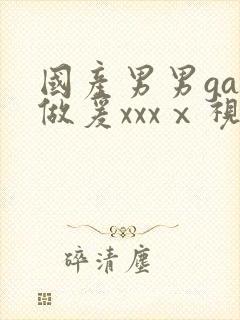 國產男男ga
做爰xxxⅹ視
碎清塵